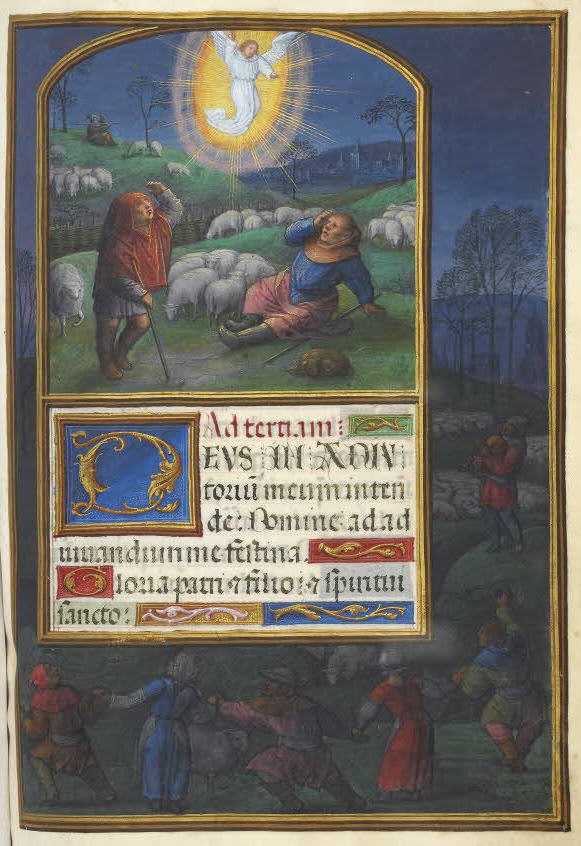 Ad tertiam:
DEVS IN ADIV
toriu᷈ meum inten
de: Domine ad ad
iuuandum me festina.
Gloria patri ⁊ filio: ⁊ spiritui
sancto: